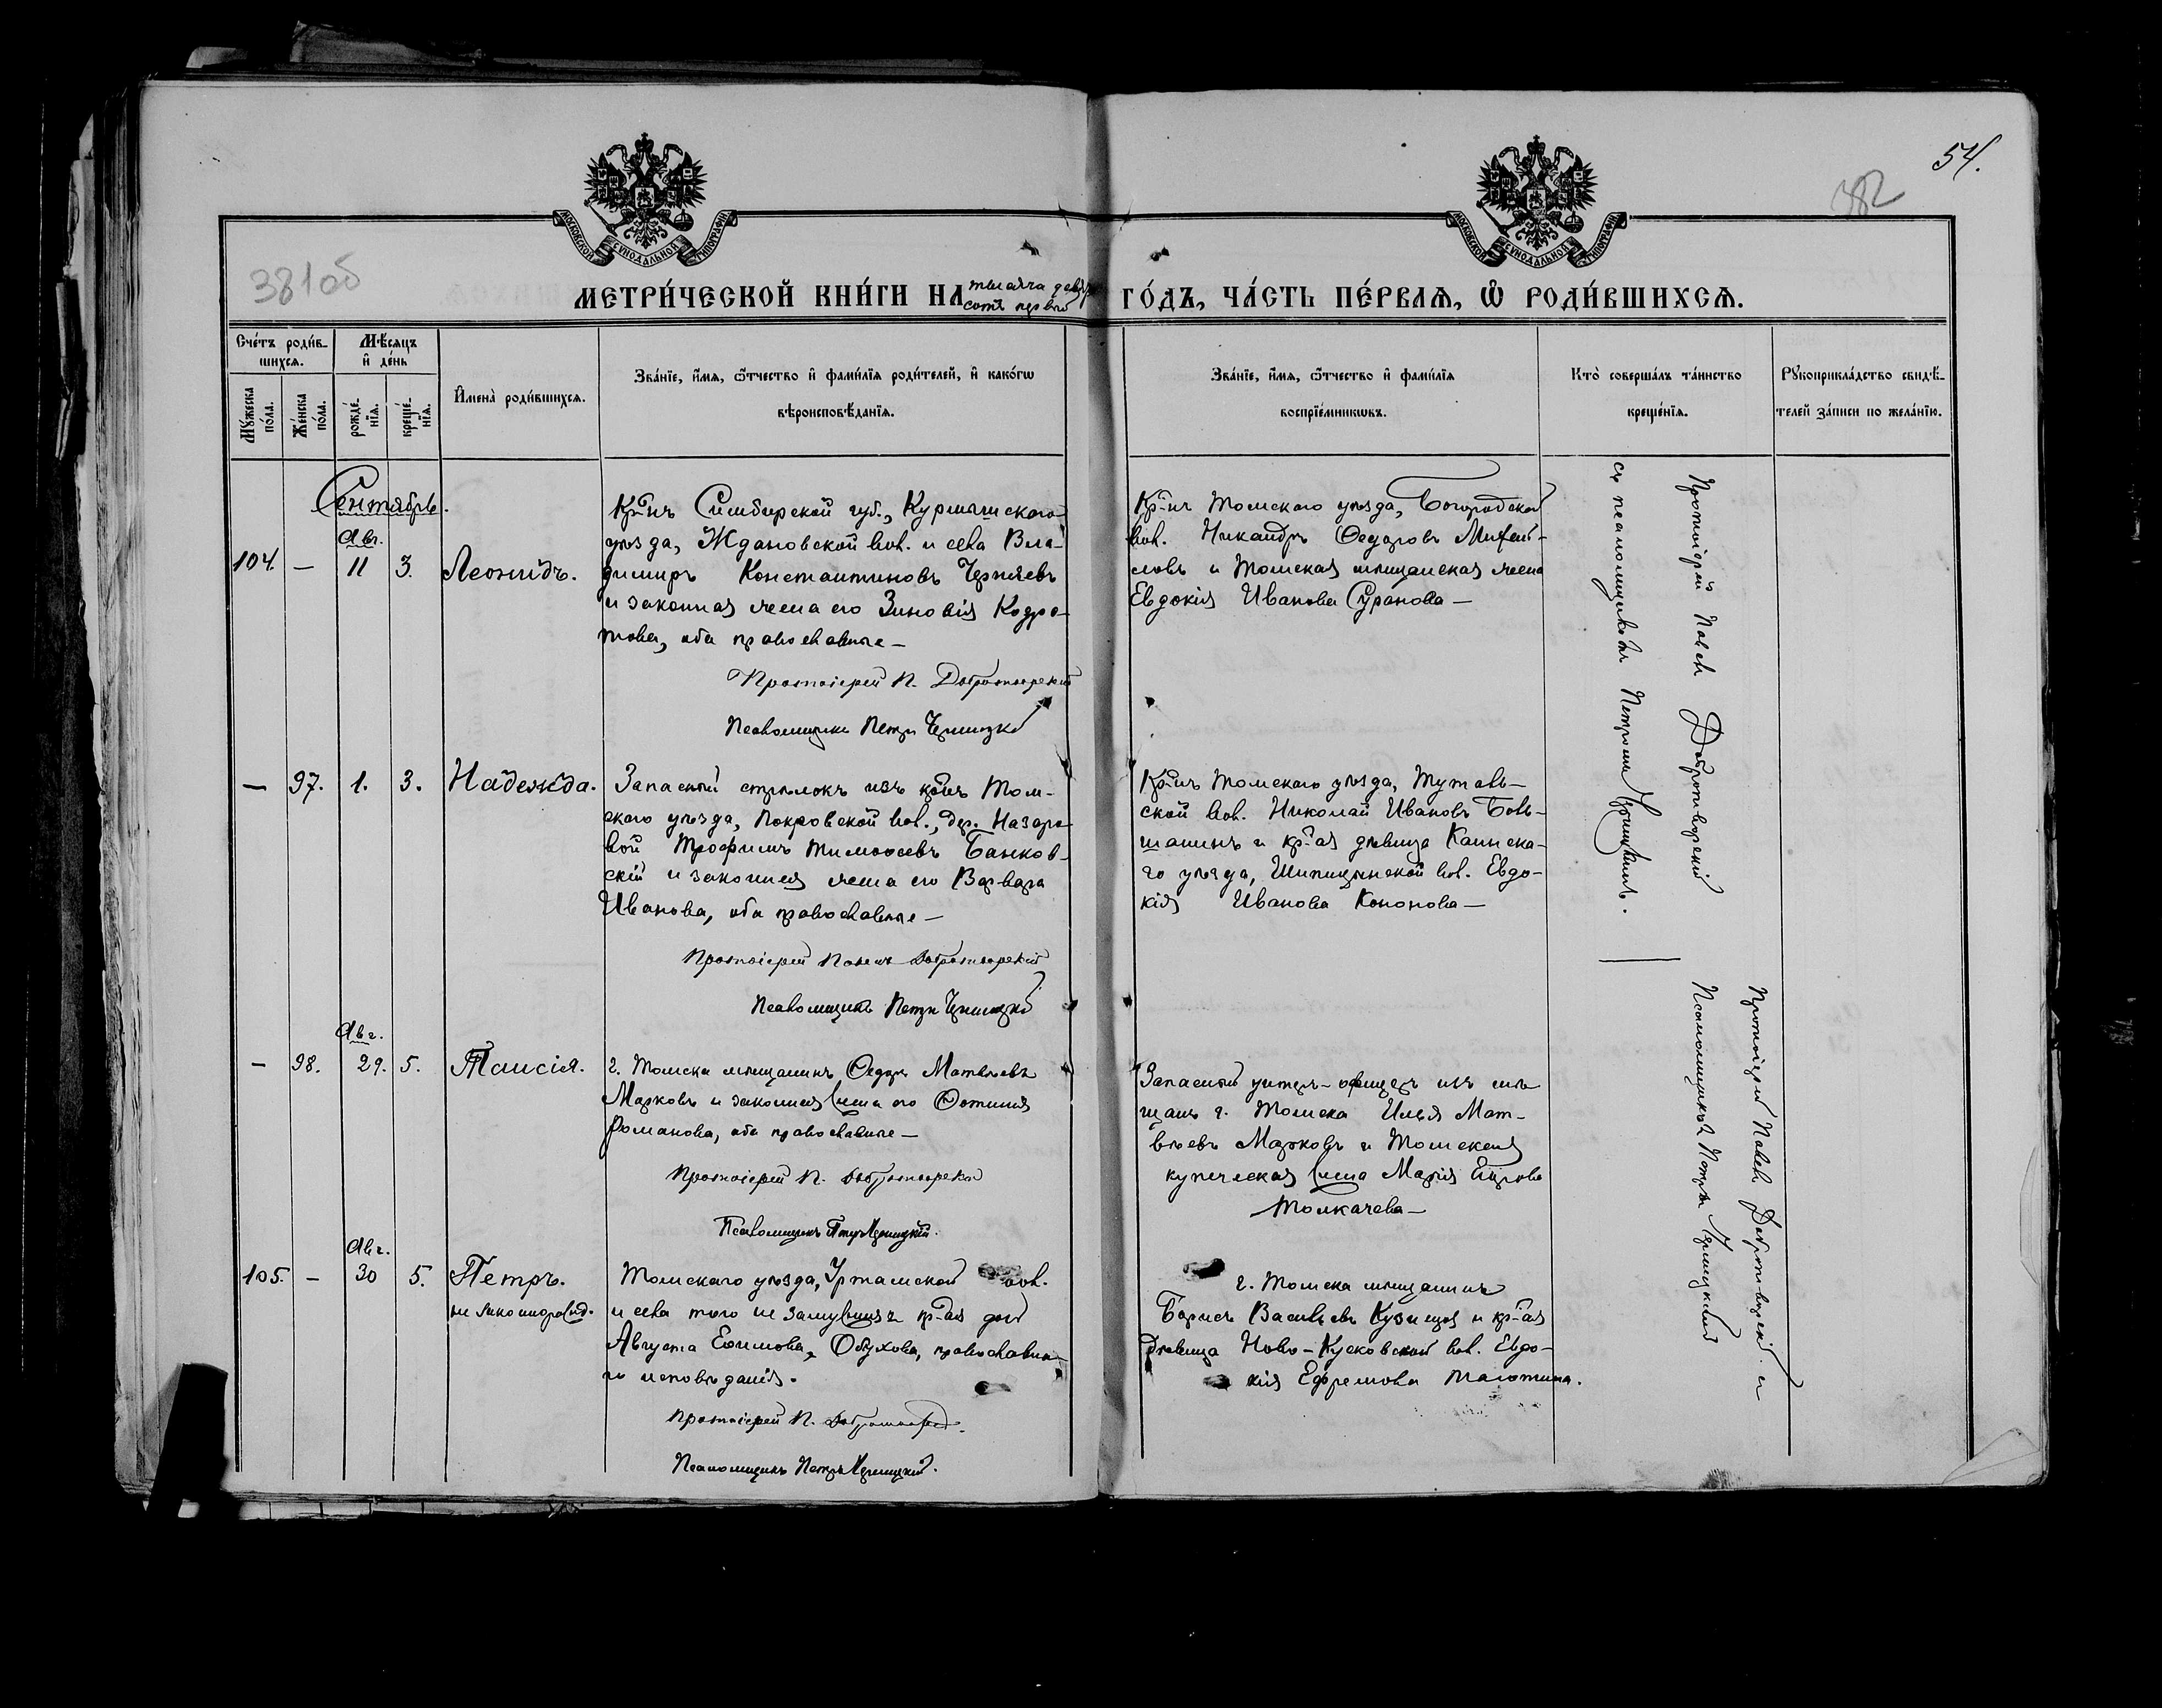 54.
382
38106
МОСКОВСКОЙ СѴНОДАЛЬНОЙ ТИПОГРАФІИ
МОСКОВСКОЙ СѴНОДАЛЬНОЙ ТИПОГРАФІИ
МЕТРИ́ЧЕСКОЙ КНИ́ГИ НА тысяча девять
сотъ первый
ГО́ДЪ, ЧА́СТЬ ПЕ́РВАѦ, Ѽ РОДИ́ВШИХСѦ.
Сче́тъ роди́в-
шихсѧ.
Мꙋ́жеска
по́ла.
Же́нска
по́ла.
Мѣ́сѧцъ
и҆ де́нь
рожде́-
нїѧ.
креще́-
нїѧ.
И҆мена̀ роди́вшихсѧ.
Зва́нїе, и҆́мѧ, ѻ҆́тчество и҆ фами́лїѧ роди́телей, и҆ како́гѡ
вѣроисповѣ́данїѧ.
Зва́нїе, и҆́мѧ, ѻ҆́тчество и҆ фами́лїѧ
воспрїе́мникѡвъ.
Кто̀ соверша́лъ та́инство
креще́нїѧ.
Рꙋкоприкла́дство свидѣ́-
телей за́писи по жела́нїю.
Сентябрь.
Авг.
104. — 11 3. Леонидъ.
Кр-нъ Симбирской губ., Курмышскаго
уѣзда, Ждановской вол. и села Вла-
димиръ Константиновъ Черняевъ
и законная жена его Зиновія Кодра-
това, оба православные —
Протоіерей П. Добротворскій
Псаломщикъ Петръ Черницкій
Кр-нъ Томскаго уѣзда, Богородской
вол. Никандръ Ѳедоровъ
ловъ и Томская мѣщанская жена
Евдокія Иванова Суранова —
Протоіерей Павелъ Добротворскій
съ псаломщикомъ Петромъ Черницкимъ.
— 97. 1. 3. Надежда.
Запасный стрѣлокъ изъ кр-нъ Том-
скаго уѣзда, Покровской вол., дер. Назаро-
вой Трофимъ Тимоѳеевъ Банков-
скій и законная жена его Варвара
Иванова, оба православные —
Протоіерей Павелъ Добротворскій
Псаломщикъ Петръ Черницкій
Кр-нъ Томскаго уѣзда, Тутал-
ской вол. Николай Ивановъ Бол-
шанинъ и кр-ая дѣвица Каинска-
го уѣзда, Шипицинской вол. Евдо-
кія Иванова Кононова —
Авг.
— 98. 29. 5. Таисія.
г. Томска мѣщанинъ Ѳедоръ Матвѣевъ
Марковъ и законная жена его Фотинія
Романова, оба православные —
Протоіерей П. Добротворскій
Псаломщикъ Петръ Черницкій.
Запасный унтеръ-офицеръ изъ мѣ-
щанъ г. Томска Илья Мат-
вѣевъ Марковъ и Томская
купеческая жена Марія
Толкачева —
Протоіерей Павелъ Добротворскій и
Псаломщикъ Петръ Черницкій
Авг.
105. — 30 5. Петръ.
незаконнорожд.
Томскаго уѣзда, Уртамской вол.
и села того не замужняя кр-ая дочь
Августа Ефимова, Обухова, православна-
го исповѣданія.
Протоіерей П. Добротворскій.
Псаломщикъ Петръ Черницкій.
г. Томска мѣщанинъ
Борисъ Васильевъ Кузнецов и кр-ая
дѣвица Ново-Кусковской вол. Евдо-
кія Ефремова